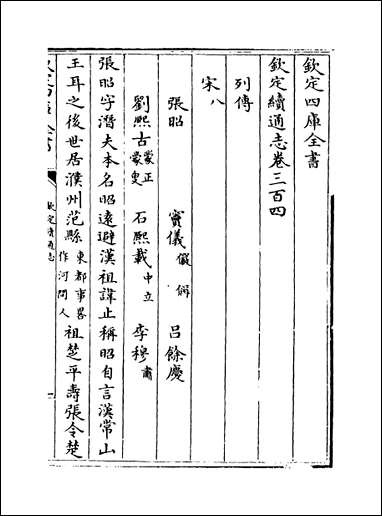 欽定四庫全書
欽定續通志卷三百四
列傳
宋八
張昭 竇儀 儼 偁 呂餘慶
劉熙古 蒙正 蒙叟 石熙載 中立 李穆 肅
張昭字潛夫本名昭遠避漢祖諱止稱昭自言漢常山
王耳之後世居濮州范縣 東都事畧作河間人 祖楚平壽張令楚
欽定續通志
一